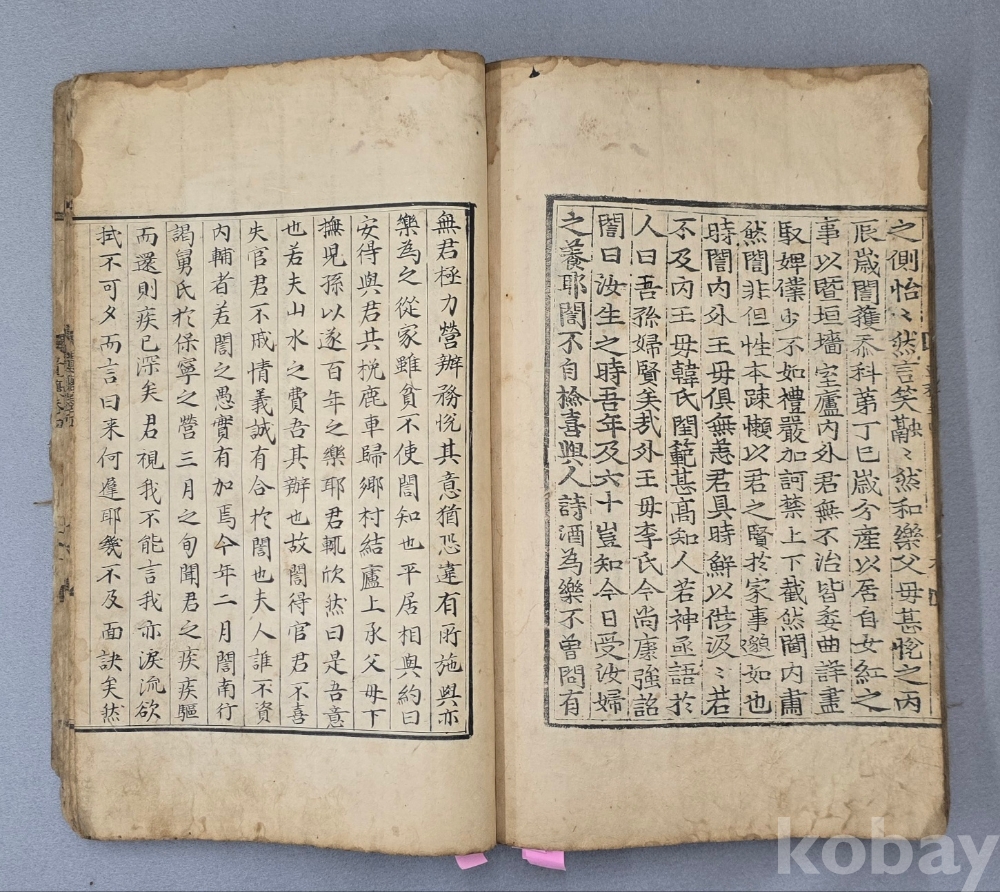 之側怡〻然言笑融〻然和樂父母甚悅之丙
辰歲誾獲忝科第丁巳歲分產以居自女紅之
事以曁垣墻室廬內外君無不治皆委曲詳盡
馭婢僕少不如禮嚴加訶禁上下截然閫內肅
然誾非但性本踈懶以君之賢於家事邈如也
時誾內外王母俱無恙君具時鮮以偕汲〻若
不及內王母韓氏閨範甚高知人若神亟語於
人曰吾孫婦賢矣㢤外王母李氏今尚康強詔
誾曰汝生之時吾年及六十豈知今日受汝婦
之養耶誾不自撿喜與人詩酒為樂不曾問有
無君極力營辦務悅其意猶恐違有所施與亦
樂為之從家雖貧不使誾知也平居相與約曰
安得與君共挽鹿車歸鄉村結廬上承父母下
撫兒孫以遂百年之樂耶君輒欣然曰是吾意
也若夫山水之費吾其辦也故誾得官君不喜
失官君不戚情義誠有合於誾也夫人誰不資
內輔者若誾之愚實有加焉今年二月誾南行
謁舅氏於保寧之營三月之旬聞君之疾疾驅
而還則疾已深矣君視我不能言我亦淚流欲
拭不可夕而言曰来何遲耶幾不及面訣矣然
kobay